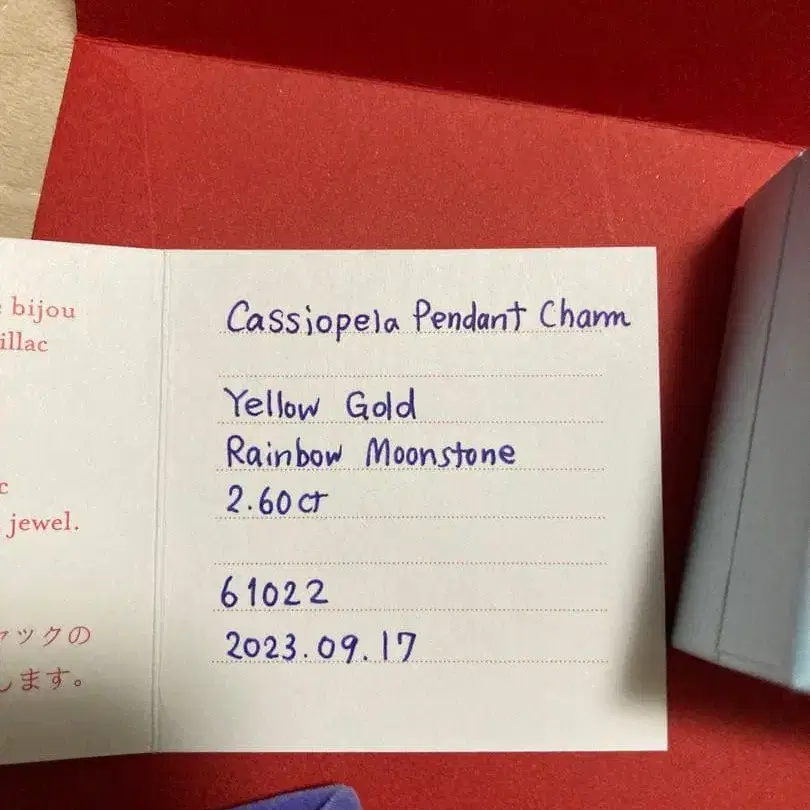 bijou
illac
jewel.
ックの
します。
Cassiopela Pendant Charm
Yellow Gold
Rainbow Moonstone
2.60ct
61022
2023.09.17